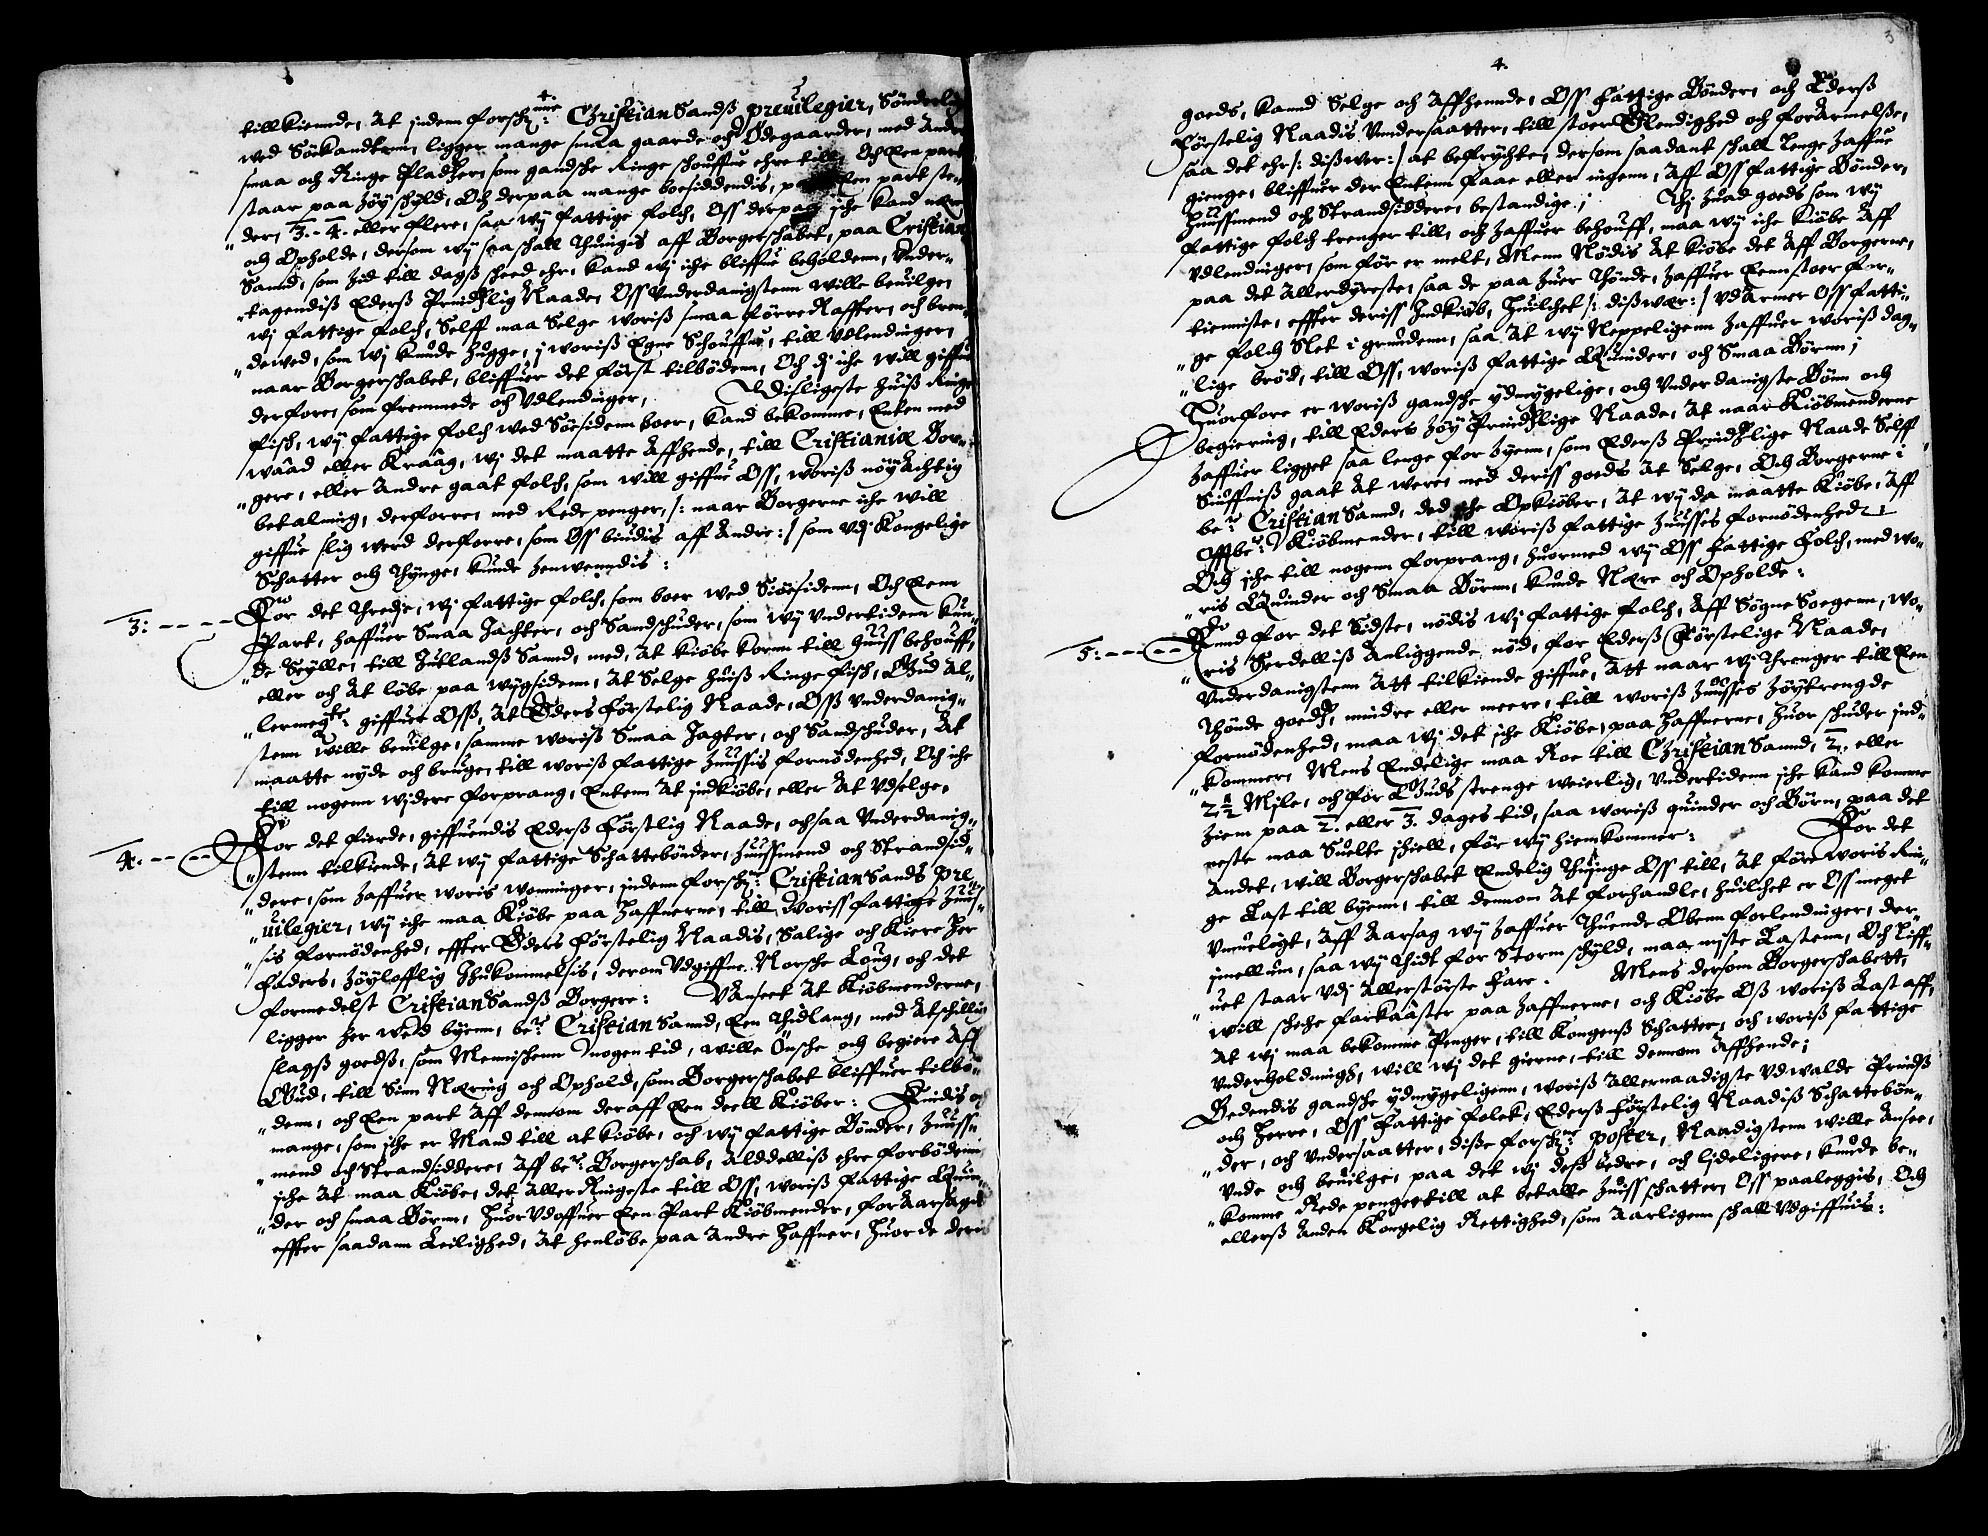 tillkiennde, At inden forschne: ChristianSandß preuilegier, Sönderlig
ved Söekandtenn, ligger mange smaa gaarde och Ödegaarder, med Andre
smaa och Ringe Pladtzer, som gandsche Ringe schouffue ehre till, Och Een part
staar paa höÿ schÿld, Och derpaa mange boesiddendis, paa Een part ste-
der, 3. - 4. eller flere, saa wÿ fattige folch, Oss derpaa iche kand nære
och Opholde, dersom wÿ saa schall thuingis aff Borgerschabet, paa Cristian
Sannd, som hid till dagß scheed ehr, kand wj iche bliffue beholdenn, Under-
tagendiß Ederß Prindtzlig Naade, Oss Underdanigstenn wille beuilge,
wj fattige folch, Selff maa Selge woriß smaa förre Raffter, och bren-
dewed, som wj kunde hugge, j woriß Egne Schouffue, till Udlendinger,
naar Borgerschabet, bliffuer det först tilböden, Och dj iche will giffue
derfore, som fremmede och Udlendinger, Disligeste huiß Ringe
fisch, wÿ fattige folch wed Söesidenn boer, kand bekomme, Enten med
waad eller Kraag, wj det maatte Affhende, till Cristianiæ Bor-
gere, eller Andre gaat folch, som will giffue Oss, woriß nöÿachtig
betaling, derforre, med Rede penger, /: naar Borgerne iche will
giffue slig werd derforre, som Oss biudis aff Andre :/ som udj Kongelige
Schatter och thÿnge, kunde henwenndis :
3: For det thredje, wj fattige folch, som boer wed Siöesidenn, Och Eenn
Part, haffuer Smaa Jachter, och Sandschuder, som wÿ undertidenn kun-
de Seÿlle, till Jutlandß Sannd, med, At kiöbe korn till huuss behouff,
eller och At löbe paa wÿgsidenn, At Selge huiß Ringe fisch, Gud Al-
lermegte: giffuer Oss, At Eders Förstelig Naade, Oss Underdanig-
stenn wille beuilge, samme woriß Smaa Jagter, och Sandschuder, At
maatte nÿde och bruge, till woriß fattige huussis fornödenhed, Och iche
till nogenn wjdere forprang, Entenn At indkiöbe, eller At Udselge,
4: For det fierde, giffuendis Ederß Förstlig Naade, ochsaa Underdanig-
stenn tilkiende, At wÿ fattige Schattebönder, huussmend och Strandsid-
dere, som haffuer woris wonninger, indem forsche: CristianSands pre-
uilegier, wÿ iche maa Kiöbe paa haffnerne, till woriss fattige huus-
sis fornödenhed, effter Eders Förstelig Naadis, Salige och Kiere Her
faders, höÿlofflig Ihukommelsis, derom Udgiffne Norsche Loug, och det
formedelst CristianSandß Borgere: Uanseet At Kiöbmenderne,
ligger her wed bÿenn, bete: CristianSannd, Een thidlang, med Atschillig
slagß goedß, som Menneschenn nogen tid, wille Önsche och begiere Aff
Gud, till Sinn Næring och Ophold, som Borgerschabet bliffuer tilbö-
denn, och Een part Aff dennom deraff Een deell Kiöber: Findis och
mange, som iche er Mand till at kiöbe, och wÿ fattige Bönder, huuss-
mend och Strandsiddere, Aff bete: Borgerschab, Alddelliß ehre forbödenn
iche At maa Kiöbe, det Aller Ringeste till Oss, woriß fattige Quin-
der och smaa Börnn, huor Udoffuer Een Part Kiöbmender, forAarsagis
effter saadann Leilighed, At henlöbe paa Andre haffner, huor de deris
4.
3
goeds, kannd Selge och Affhennde, Oss fattige Bönder, och Ederß
Förstelig Naadis Undersaatter, till stoer Elendighed och forArmelße,
saa det ehr /: dißwer: / at befrÿchte, dersom saadant schall lenge haffue
gienge, bliffuer der Entenn faae eller ingenn, Aff Oss fattige Bönder,
huussmend och Strandsiddere, bestandige ; Thj huad goeds som wÿ
fattige folch trenger till, och haffuer behouff, maa wÿ iche Kiöbe Aff
Udlendinger, som för er melt, Menn Nödis At kiöbe det Aff Borgerne,
paa det Allerdÿreste, saa de paa huer thönde, haffuer Eenn stoer for-
tienniste, effter deriss Indkiöb, huilchet /: dißwær: / UdArmer Oss fatti-
ge folch Slet i grunden, saa At wÿ Neppeligenn haffuer woriß dag-
lige bröd, till Oss, woriß fattige Quinder, och Smaa Börnn ;
Huorfore er woriß gandsche ÿdmÿgelige, och Underdanigste Bönn och
begiering, till Eders höÿ Prindtzlige Naade, At naar Kiöbmenderne
haffuer ligget saa lenge for bÿenn, som Ederß Prindtzlige Naade Selff
Siunffniß gaat At were, med deriss goeds At Selge, Och Borgerne i
bete: CristianSannd, ded iche Opkiöber, At wÿ da maatte Kiöbe, Aff
Offbete: Kiöbmender, till woriß fattige huusses fornödenhed,
Och iche till nogenn forprang, huormed wÿ Oss fattige folch, med wo-
ris Quinder och Smaa Börnn, kunde Nære och Opholde:
5: Ennd for det Sidste, nödis wj fattige folch, Aff Sögne Soegenn, wo-
ris Serdelliß Anliggende nöd, for Ederß Förstelige Naade,
Underdanigstenn Att tilkiende giffue, Att naar wj threnger till Een
thönde goeds, mindre eller meere, till woriß huusses höÿtrengde
fornödenhed, maa wj det iche Kiöbe, paa haffnerne, huor schuder ind-
kommer, Mens Endelige maa Roe till ChristianSannd, 2. eller
2 1/2 Mÿle, och for Guds strenge weierlig, Undertidenn iche kand komme
hiem paa 2. eller 3. dages tid, saa woriß quinder och Börn, paa det
neste maa Suelte ihiell, för wÿ hiemkommer: For det
Andet, will Borgerschabet Endelig thuinge Oss till, At före woris Rin-
ge Last till bÿenn, till dennom At forhandle, huilchet er Oss meget
Umueligt, Aff Aarsag wÿ haffuer thuende Obenn forlendinger, der-
imellum, saa wÿ thidt for Storm schÿld, maa miste Lastenn, Och Liff-
uet staar Udj Allerstörste fare. Mens dersom Borgerschabett,
will schiche farkaaster paa haffnerne, och Kiöbe Oss woriß Last aff,
At wj maa bekomme Penger, till Kongenß Schatter, och woriß fattige
Underholdningh, will wj det gierne, till dennom Affhende ;
Bedendis gandsche ÿdmÿgeligenn, woriß Allernaadigste Udwalde Prindß
och Herre, Oss fattige folck, Ederß Förstelig Naadiß Schattebön-
der, och Undersaatter, diße forschne: poster, Naadigstenn wille Ansee,
Unde och beuilge, paa det wj deß bedre, och lideligere, kunde be-
komme Rede penge till at betalle huiss schatter, Oss paaleggis, Och
ellerß Anden Kongelig Rettighed, som Aarligenn schall Udgiffuis :